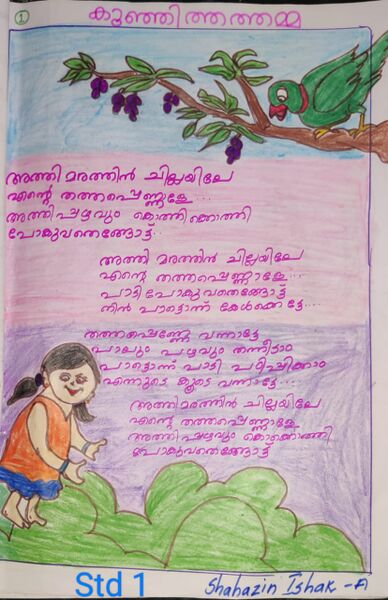 1
കുഞ്ഞിത്തത്തമ്മ
അത്തി മരത്തിൻ ചില്ലയിലേ
എന്റെ തത്തപ്പെണ്ണാളേ...
അത്തിപ്പഴവും കൊത്തിക്കൊത്തി
പോകുവതെങ്ങോട്ട്..
അത്തി മരത്തിൻ ചില്ലയിലേ
എന്റെ തത്തപ്പെണ്ണാളേ...
പാടി പോകുവതെങ്ങോട്ട്
നിൻ പാട്ടൊന്ന് കേൾക്കട്ടേ...
തത്തപ്പെണ്ണേ വന്നാട്ടേ
പാലും പഴവും തന്നീടാം
പാട്ടൊന്ന് പാടി പഠിപ്പിക്കാം
എന്നുടെ കൂടെ വന്നാട്ടേ...
അത്തിമരത്തിൻ ചില്ലയിലേ
എന്റെ തത്തപ്പെണ്ണാളേ
അത്തിപ്പഴവും കൊക്കിലൊത്തി
പോകുവതെങ്ങോട്ട്
Std 1
Shahazin Ishak -A